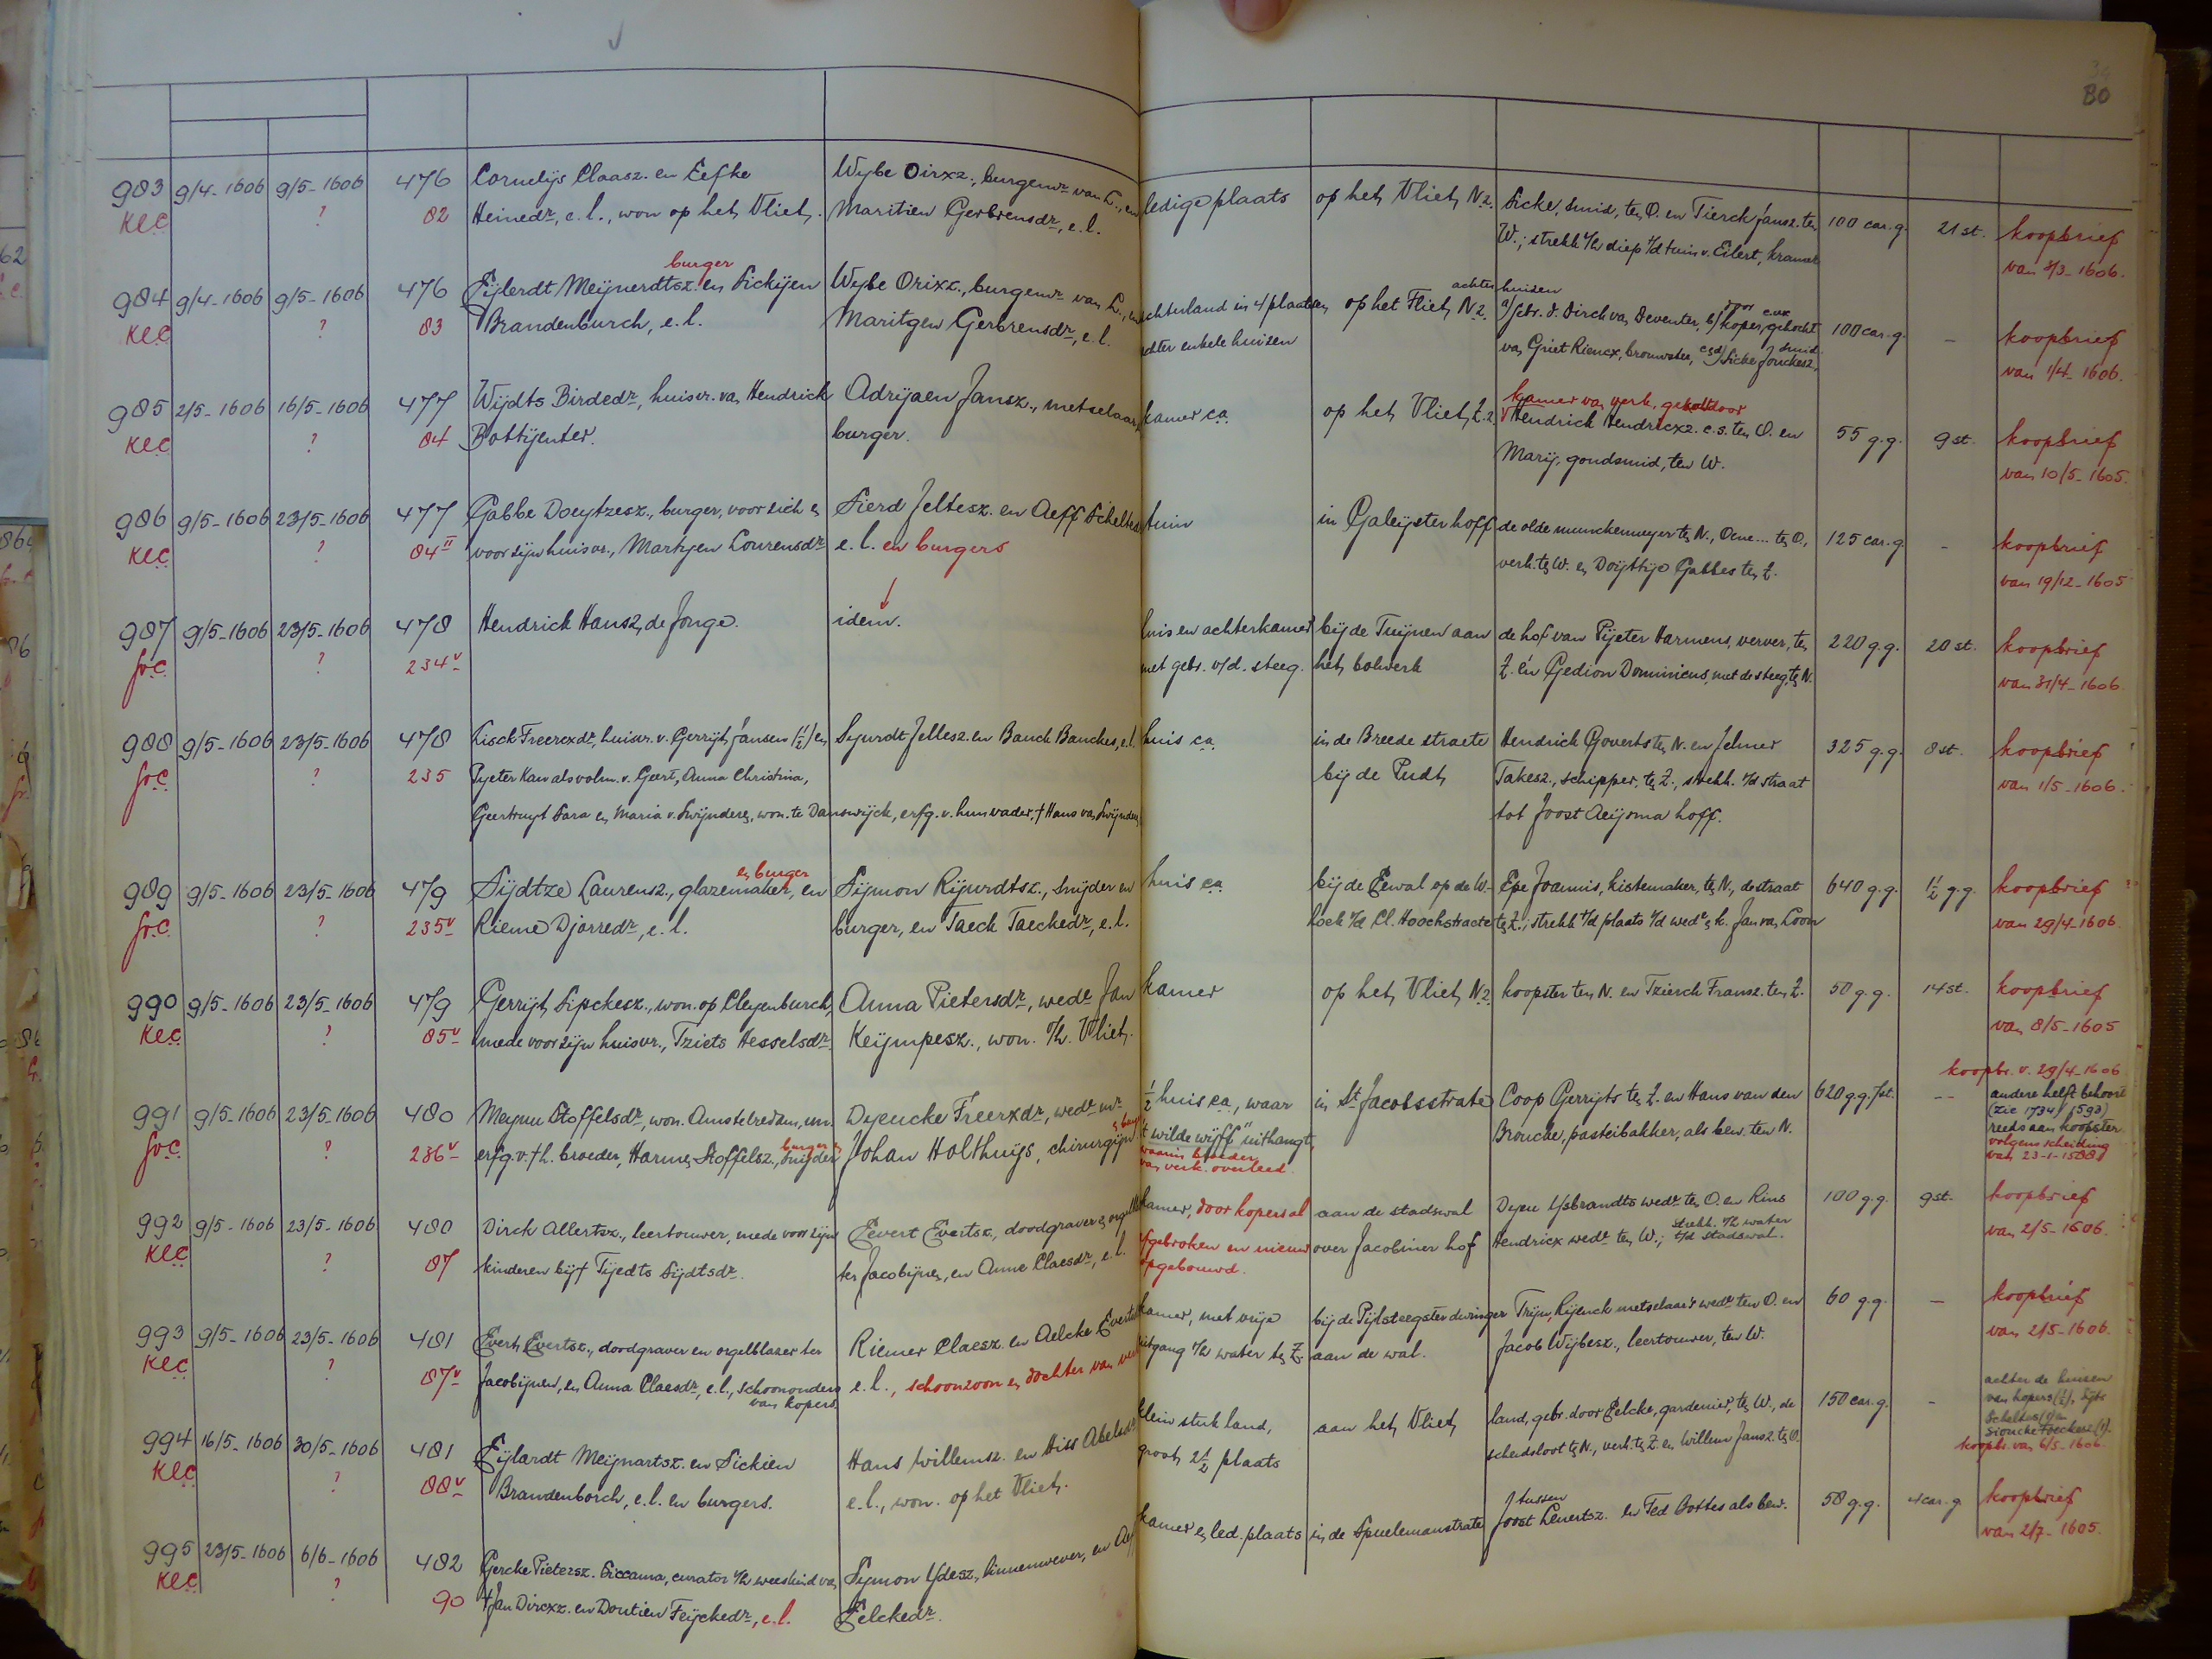 80
983 9/4-1606 9/5-1606 476 Cornelijs Claasz. en Eefke Wybe Dirxz., burgemr van L., en ledige plaats op het Vliet N.z. Sicke, smid, ten O. en Tierck Jansz. ten 100 car.g. 21 st. koopbrief
kec ? 82 Heinedr, e.l., won op het Vliet. Maritien Gerbrensdr, e.l. W.; strekk. v/h diep t/d tuin v. Eilert, kramer van 8/3-1606.
burger achter huizen
984 9/4-1606 9/5-1606 476 Eijlerdt Meijnerdtsz. en Sickijen Wybe Orixz., burgemr van L., en achterland in 4 plaatsen op het Fliet N.z. a/ gebr. d. Dirck van Deventer, b/ koper, gekocht 100 car.g. - koopbrief
kec ? 83 Brandenburch, e.l. Maritgen Gerbrensdr, e.l. achter enkele huizen van Griet Riencx, brouwster, c en d/ Sicke Jouckesz, smid. van 1/4-1606.
kamer van verk. gekocht door
985 2/5-1606 16/5-1606 477 Wijdts Birdedr, huisvr. van Hendrick Adrijaen Jansz., metselaar, kamer ca. op het Vliet, Z.z. Hendrick Hendricxz. c.s. ten O. en 55 g.g. 9 st. koopbrief
kec ? 84 Bottijenter. burger. Marij, goudsmid, ten W. van 10/5-1605.
986 9/5-1606 23/5-1606 477 Gabbe Doeytzesz., burger, voor zich en Sierd Jeltesz. en Aeff Scheltes tuin in Galeijster hoff de olde munckemuyer ten N., Oene... ten O., 125 car.g. - koopbrief
kec ? 84II voor zijn huisvr., Martyen Lourensdr e.l. en burgers verk. ten W. en Doijttije Gabbes ten Z. van 19/12-1605
987 9/5-1606 23/5-1606 478 Hendrick Hansz, de Jonge. idem. huis en achterkamer bij de Tuijnen aan de hof van Pijeter Harmens, verver, ten 220 g.g. 20 st. koopbrief
frc ? 234v met gebr. v/d. steeg. het bolwerk Z. en Gedion Dominicus, met de steeg, ten N. van 31/4-1606
988 9/5-1606 23/5-1606 478 Lisck Freercxdr, huisvr. v. Gerrijt Jansen (½) en Sjurdt Jellesz. en Bauck Bauckes, e.l. huis ca. in de Breede straete Hendrick Goverts ten N. en Jelmer 325 g.g. 8 st. koopbrief
frc ? 235 Pijeter Kan als volm. v. Geert, Anna Christina, bij de Pudt Takesz., schipper, ten Z., strekk. v/d straat van 1/5-1606.
Geertruyt Sara en Maria v. Swijnderen, won. te Danswijck, erfg. v. hun vader, † Hans van Swijnderen tot Joost Aeijsma hoff.
en burger
989 9/5-1606 23/5-1606 479 Sijdtze Laurensz., glazemaker, en Sijmon Rijurdtsz., snijder en huis ca. bij de Eewal op de W.- Epe Joannis, kistemaker, ten N., de straat 640 g.g. 1½ g.g. koopbrief
frc ? 235v Rieme Djorredr, e.l. burger, en Taeck Taeckedr, e.l. hoek v/d Cl. Hoochstraete ten Z.; strekk. t/d plaats v/d wede en k. Jan van Loon van 29/4-1606
990 9/5-1606 23/5-1606 479 Gerrijt Sipckesz., won. op Cleyenburch, Anna Pietersdr, wede Jan kamer op het Vliet N.z. koopster ten N. en Tzierck Fransz. ten Z. 50 g.g. 14 st. koopbrief
kec ? 85v mede voor zijn huisvr., Tziets Hesselsdr. Keijmpesz., won. o/h. Vliet. van 8/5-1605
koopbr. v. 29/4-1606
991 9/5-1606 23/5-1606 480 Meynu Stoffelsdr, won. Amstelredam, un. Dyeucke Freerxdr, wede mr ½ huis ca, waar in St Jacobsstrate Coop Gerrijts ten Z. en Hans van den 620 g.g. 7 st. -- andere helft behoort
(zie 1734/1593)
frc ? 236v erfg. v. † h. broeder, Harmen Stoffelsz., burger en snijder Johan Holthuijs, chirurgijn "t wilde wijff" uithangt, Broucke, pasteibakker, als bew. ten N. reeds aan koopster
waarin broeder volgens scheiding
van verk. overleed. van 23-1-1588
992 9/5-1606 23/5-1606 480 Dirck Allertsz., leertouwer, mede voor zijn Eevert Evertsz., doodgraver en kamer, door kopers al aan de stadswal Dyeu IJsbrandts wede ten O. en Rins 100 g.g. 9 st. koopbrief
kec ? 87 kinderen bij † Tijedts Sijdtsdr. ter Jacobijnen, en Anne Claesdr, e.l. afgebroken en nieuw over Jacobiner hof Hendricx wede ten W.; strekk. v/h water t/d stadswal. van 2/5-1606.
opgebouwd.
993 9/5-1606 23/5-1606 481 Evert Evertsz., doodgraver en orgelblazer ter Riemer Claesz. en Aelcke Everts kamer, met vrije bij de Pijlsteegster dwinger Trijn, Rijenck metselaar's wede ten O. en 60 g.g. - koopbrief
kec ? 87v Jacobijnen, en Anna Claesdr, e.l., schoonouders e.l., schoonzoon en dochter van verk. uitgang v/h water ten Z. aan de wal. Jacob Wijbesz., leertouwer, ten W. van 2/5-1606.
van kopers.
achter de huizen
994 16/5-1606 30/5-1606 481 Eijlardt Meijnartsz. en Sickien Hans Willemsz. en Hiss Abelsdr klein stuk land, aan het Vliet land, gebr. door Eelcke, gardenier, ten W., de 150 car.g. - van kopers
kec ? 88v Brandenborch, e.l. en burgers. e.l., won. op het Vliet. groot 2½ plaats scheidsloot ten N., verk. ten Z. en Willem Jansz. ten O.
koopbr. van 6/5-1606.
995 23/5-1606 6/6-1606 482 Gercke Pietersz. Siccama, curator o/h weeskind van Symon IJdesz., linnenwever, en kamer en led. plaats in de Spuelemanstrate tussen Joost Leuertsz. en Ted Bottes als bew. 58 g.g. 4 car.g. koopbrief
kec ? 90 † Jan Dircxz. en Doutien Feijckedr, e.l. Eelckedr. van 2/7-1605.